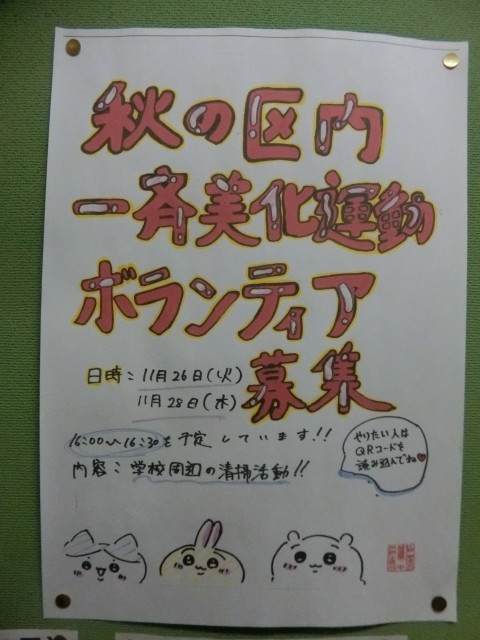 秋の区内
一斉美化運動
ボランティア
募集
日時：11月26日(火)
11月28日(木)
16:00〜16:30を予定しています!!
内容：学校周辺の清掃活動!!
やりたい人は
QRコードを
読み込んでね♥